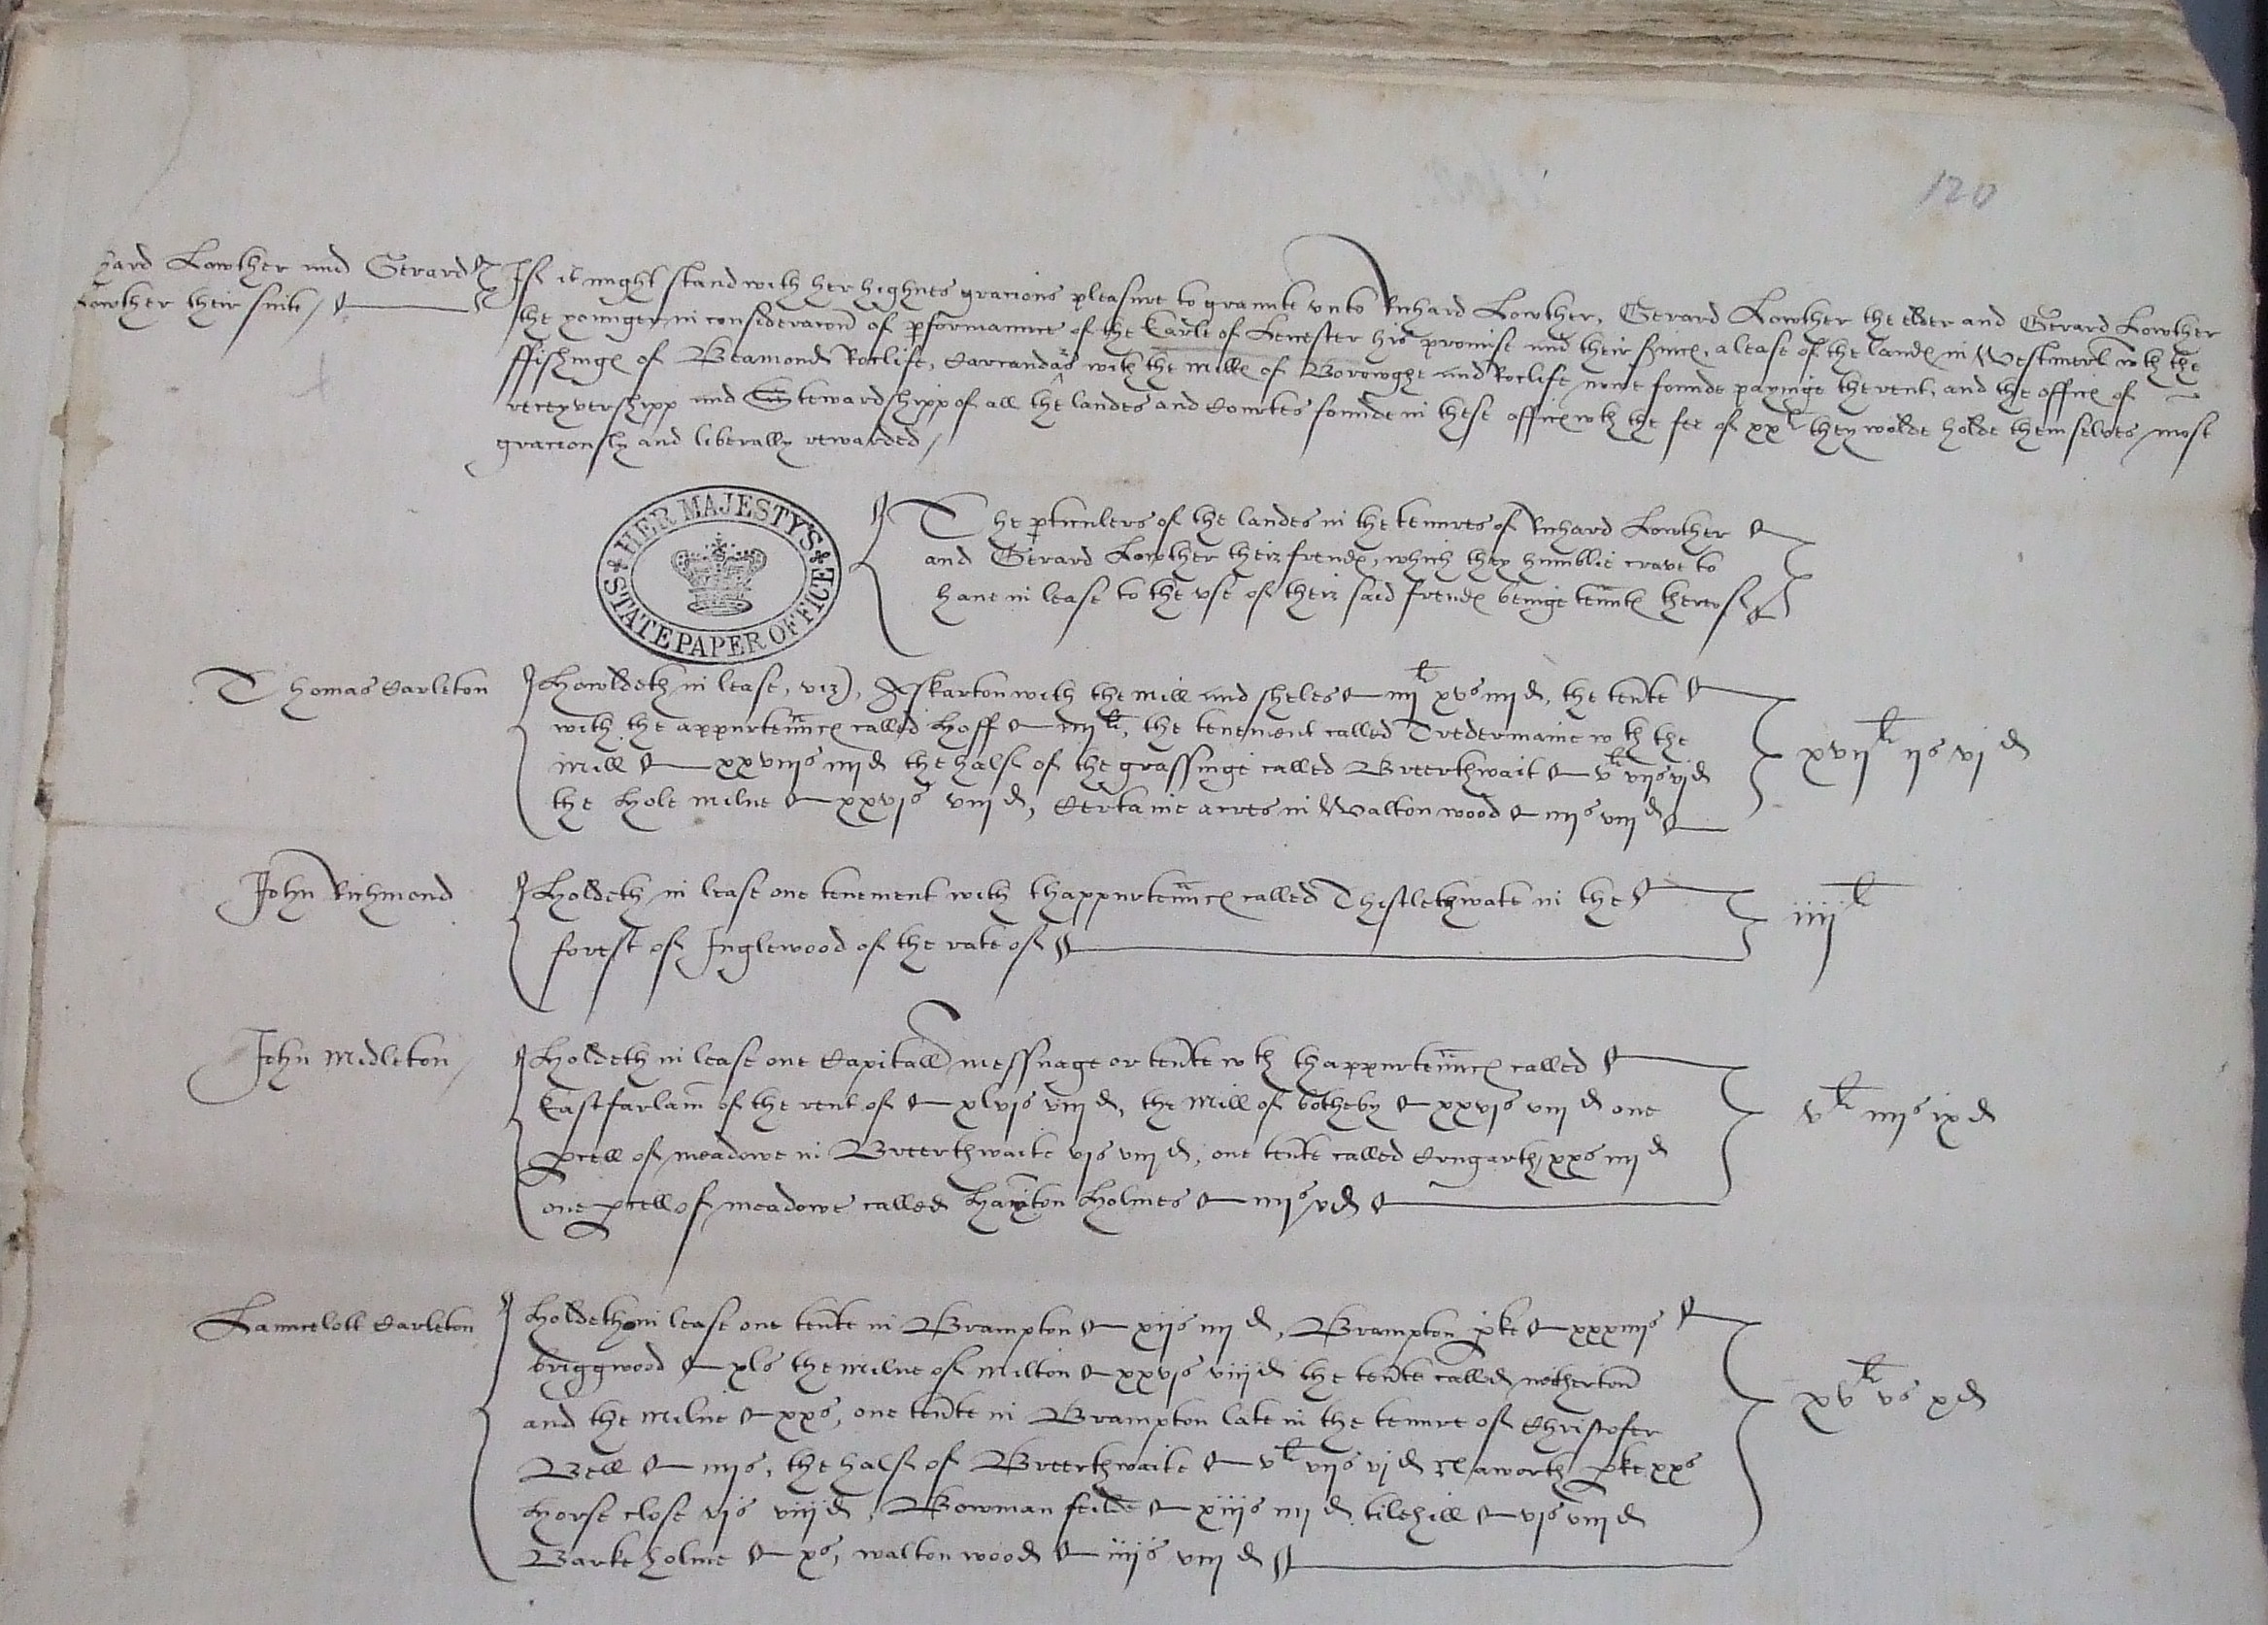 120
hard Lowther and Gerard
Lowther their suite /
If it might stand with her highnes gracious pleasure to graunte vnto Richard Lowther, Gerard Lowther the elder and Gerard Lowther
the younger in consideracon of pformaunce of the Earle of Leicester his promise and their s̃uice, a lease of the landes in Westmerl wth the
ffishinges of Beamond Roclife, Carcandas with the mille of Borowghe and Roclife nowe founde payinge the rent, and the offices of
receyvershipp and Stewardshipp of all the landes and Courtes founde in these offices wth the fee of xx li they wolde holde themselves most
graciously and liberally rewarded /
HER MAJESTY'S STATE PAPER OFFICE
The pticulers of the landes in the tenures of Richard Lowther
and Gerard Lowther their frendes, which they humblie crave to
haue in lease to the vse of their said frendes beinge tennts thereof
Thomas Carleton
Howldeth in lease, viz, Askarton with the mill and sheles iiij li xvs iiij d, the tente
with the appurtenances called Hoff iiij li, the tenement called Tredermaine wth the
mill xxviijs iiij d the half of the grassinge called Breerthwait v li vijs vj d
the Hole milne xxvjs viij d, Certaine acres in Walton wood iiijs viij d
xvij li ijs vj d
John Richmond
Holdeth in lease one tenement with thappurtenances called Thistlethwate in the
forest of Inglewood of the rate of
iiij li
John Midleton /
Holdeth in lease one Capitall messuage or tente wth thappurtenances called
Eastfarlam of the rent of xlvjs viij d, the mill of botheby xxvjs viij d one
pcell of meadowe in Breerthwaite vjs viij d, one tente called Crngarth xxs iiij d
one pcell of meadowe called Holmes iiijs v d
v li iiijs ix d
Launcelott Carleton
Holdeth in lease one tente in Brampton xijs iiij d, Brampton pke xxxiiijs
briggwood xls the milne of milton xxvjs viij d the tente called netherton
and the milne xxs, one tente in Brampton late in the tenure of Christofer
Bell iiijs, the half of Breerthwaite v li vijs vj d Naworth pke xxs
horse close vjs viij d, Bowman feilde xiijs iiij d tilehill vjs viij d
Barke holme xs, walton wood iiijs viij d
xv li vs x d